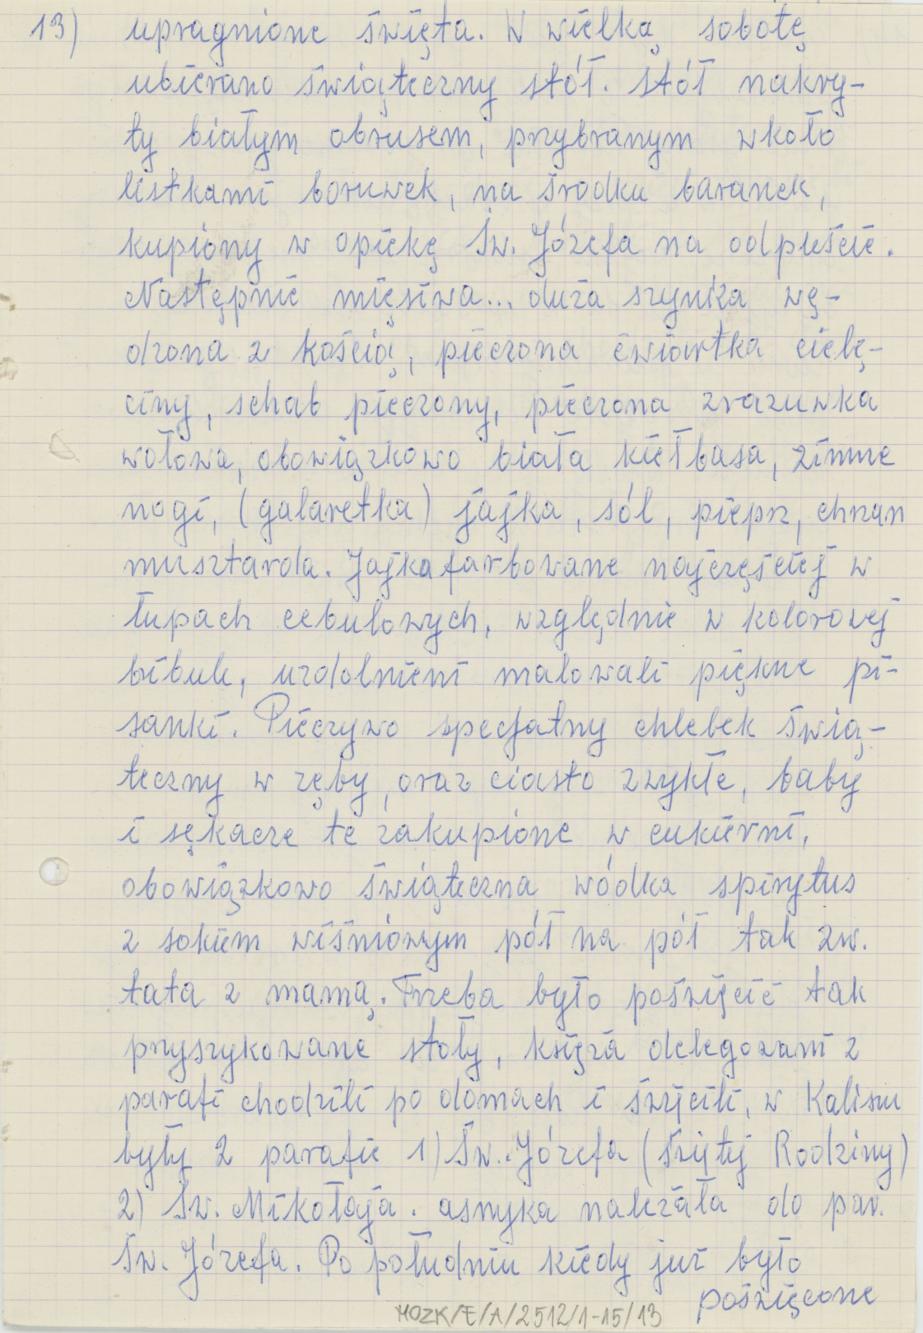 13) upragnione święta. W wielką sobotę
ubierano świąteczny stół. Stół nakry-
ty białym obrusem, przybranym wkoło
listkami boruwek, na środku baranek,
kupiony w opiekę Św. Józefa na odpuście.
Następnie mięsiwa... duża szynka wę-
dzona z kością, pieczona ćwiartka cielę-
ciny, schab pieczony, pieczona zrazuwka
wołowa, obowiązkowo biała kiełbasa, zimne
nogi, (galaretka) jajka, sól, pieprz, chrzan
musztarda. Jajka farbowane najczęściej w
łupach cebulowych, względnie w kolorowej
bibule, uzdolnieni malowali piękne pi-
sanki. Pieczywo specjalny chlebek świą-
teczny w zęby, oraz ciasto zwykłe, baby
i sękacze te zakupione w cukierni,
obowiązkowo świąteczna wódka spirytus
z sokiem wiśniowym pół na pół tak zw.
tata z mamą. Trzeba było poświęcić tak
przyszykowane stoły, księża delegowani z
parafi chodzili po domach i święcili, w Kaliszu
były 2 parafie 1) Św. Józefa (Świętej Rodziny)
2) Św. Mikołaja. asnyka należała do par.
Św. Józefa. Po południu kiedy już było
poświęcone
MOZK/E/A/2512/1-15/13